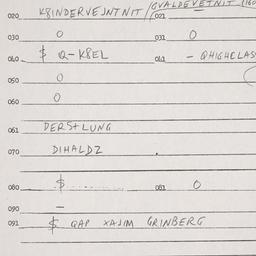 020 K8INDERVEJNTNIT/GVALDEVETNIT (160
021
030 0 031 0
040 $ Q-K8EL 041 - QHIGHCLAS
050 0
060 0
061 DERS+LUNG
070 DIHALDZ
080 $ 081 0
090 -
091 $ QAP XAJIM GRINBERG